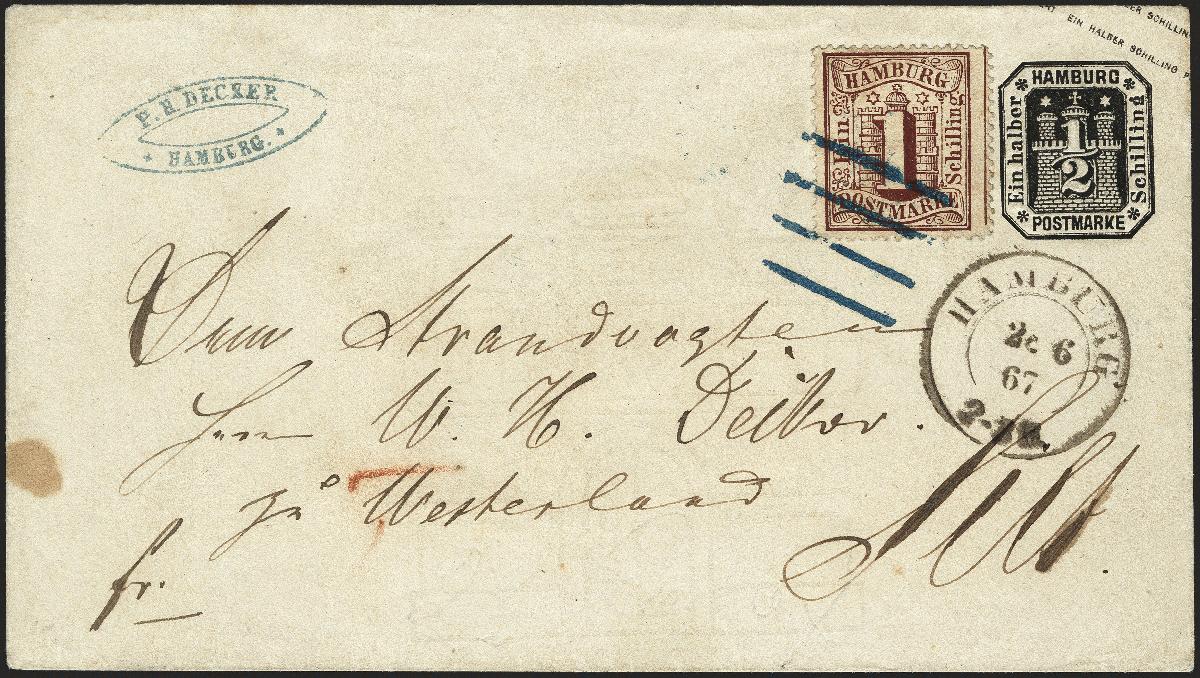 ER SCHILLIN
RT EIN HALBER SCHILLING P
P. H. DECKER
HAMBURG.
HAMBURG
Ein
1
Schilling
POSTMARKE
HAMBURG
Ein halber
1/2
Schilling
POSTMARKE
HAMBURG
26 6
67
Dem Strandvogten
Herrn W. H. Decker.
zu Westerland
Sylt.
fr.